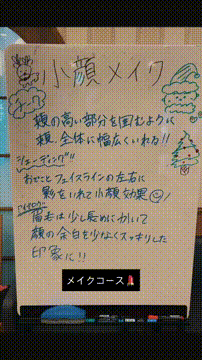 小顔メイク
頬の高い部分を囲むように
頬全体に幅広くいれる!!
シェーディング!!
おでことフェイスラインの左右に
影をいれて小顔効果
ハイライト
眉毛は少し長めにかいて
顔の余白を少なくスッキリした
印象に!!
メイクコース💄